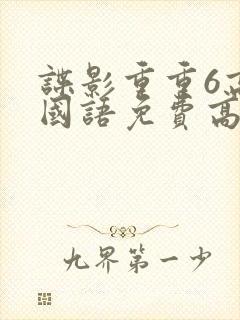 諜影重重6
國語免費高
九界第一少